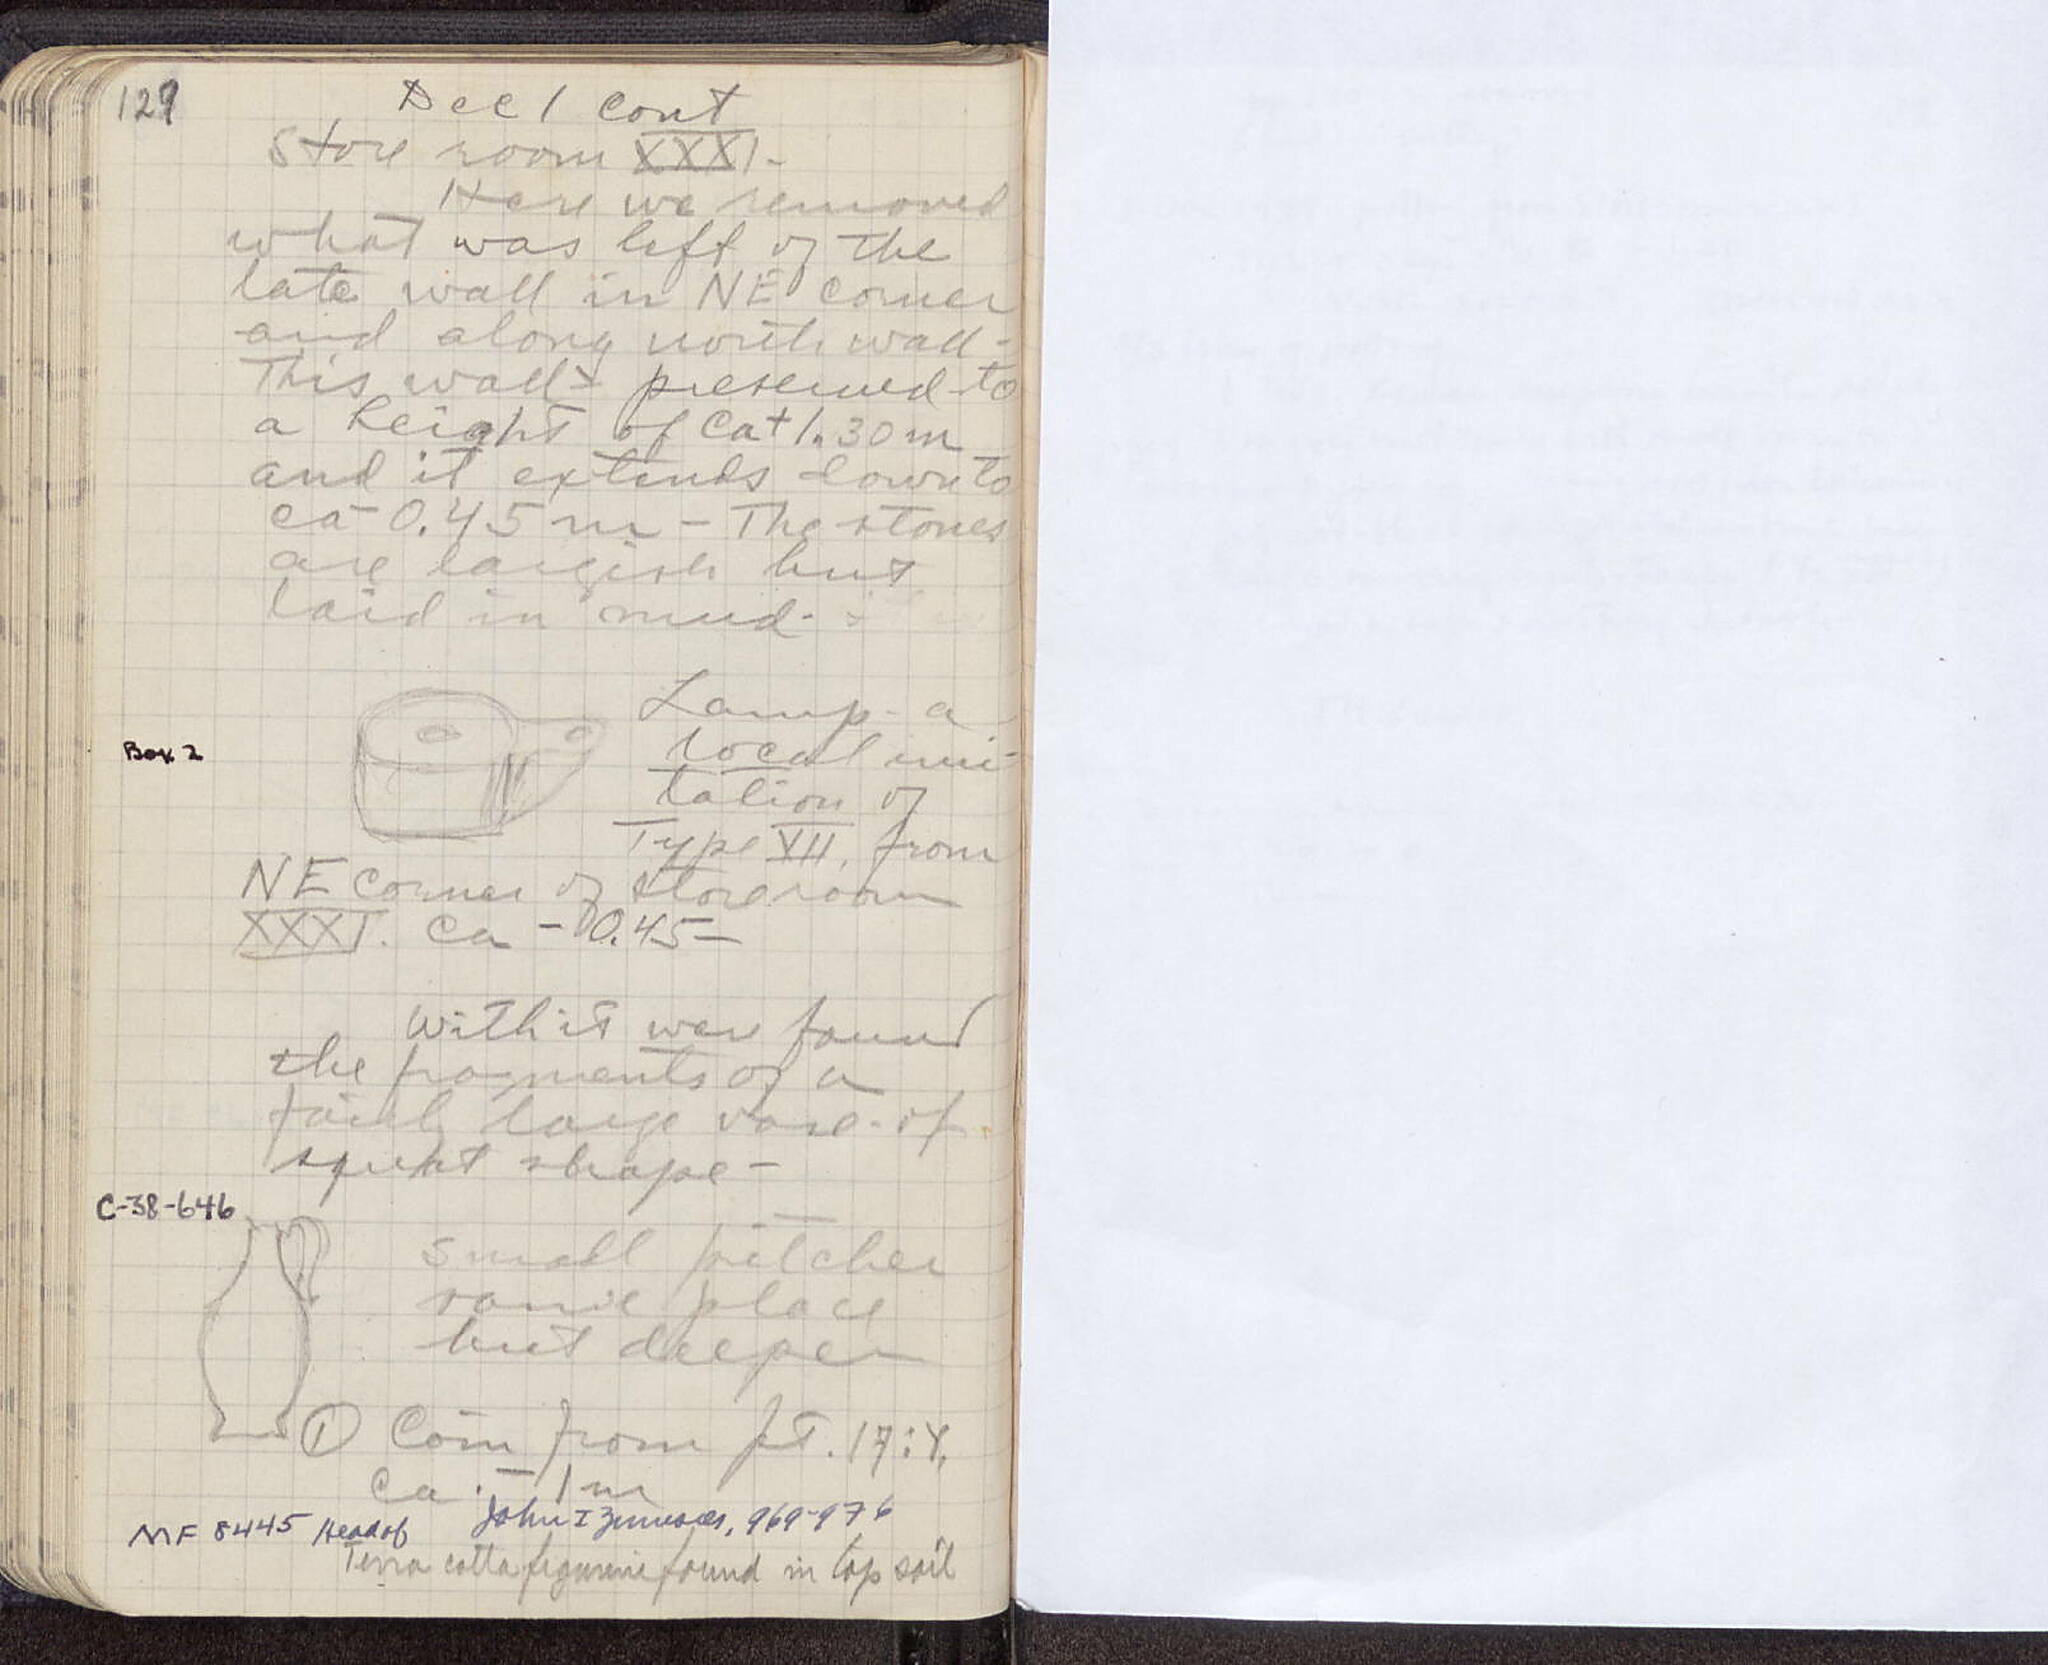 129
Dec 1 cont
Store room XXXI-
Here we removed
what was left of the
late wall in NE corner
and along north wall-
This wall is preserved to
a height of ca + 1.30 m
and it extends down to
ca - 0.45 m - The stones
are largish but
laid in mud.
Lamp - a
local imi-
tation of
Type XVII, from
Box 2
NE corner of storeroom
XXXI. ca - 0.45 -
With it were found
the fragments of a
fairly large vase - of
squat shape -
C-38-646
small pitcher
same place
but deeper
① Coin from pt. 17:Y,
ca. - 1 m
John I Zimisces, 969-976
MF 8445 Head of
Terra cotta figurine found in top soil